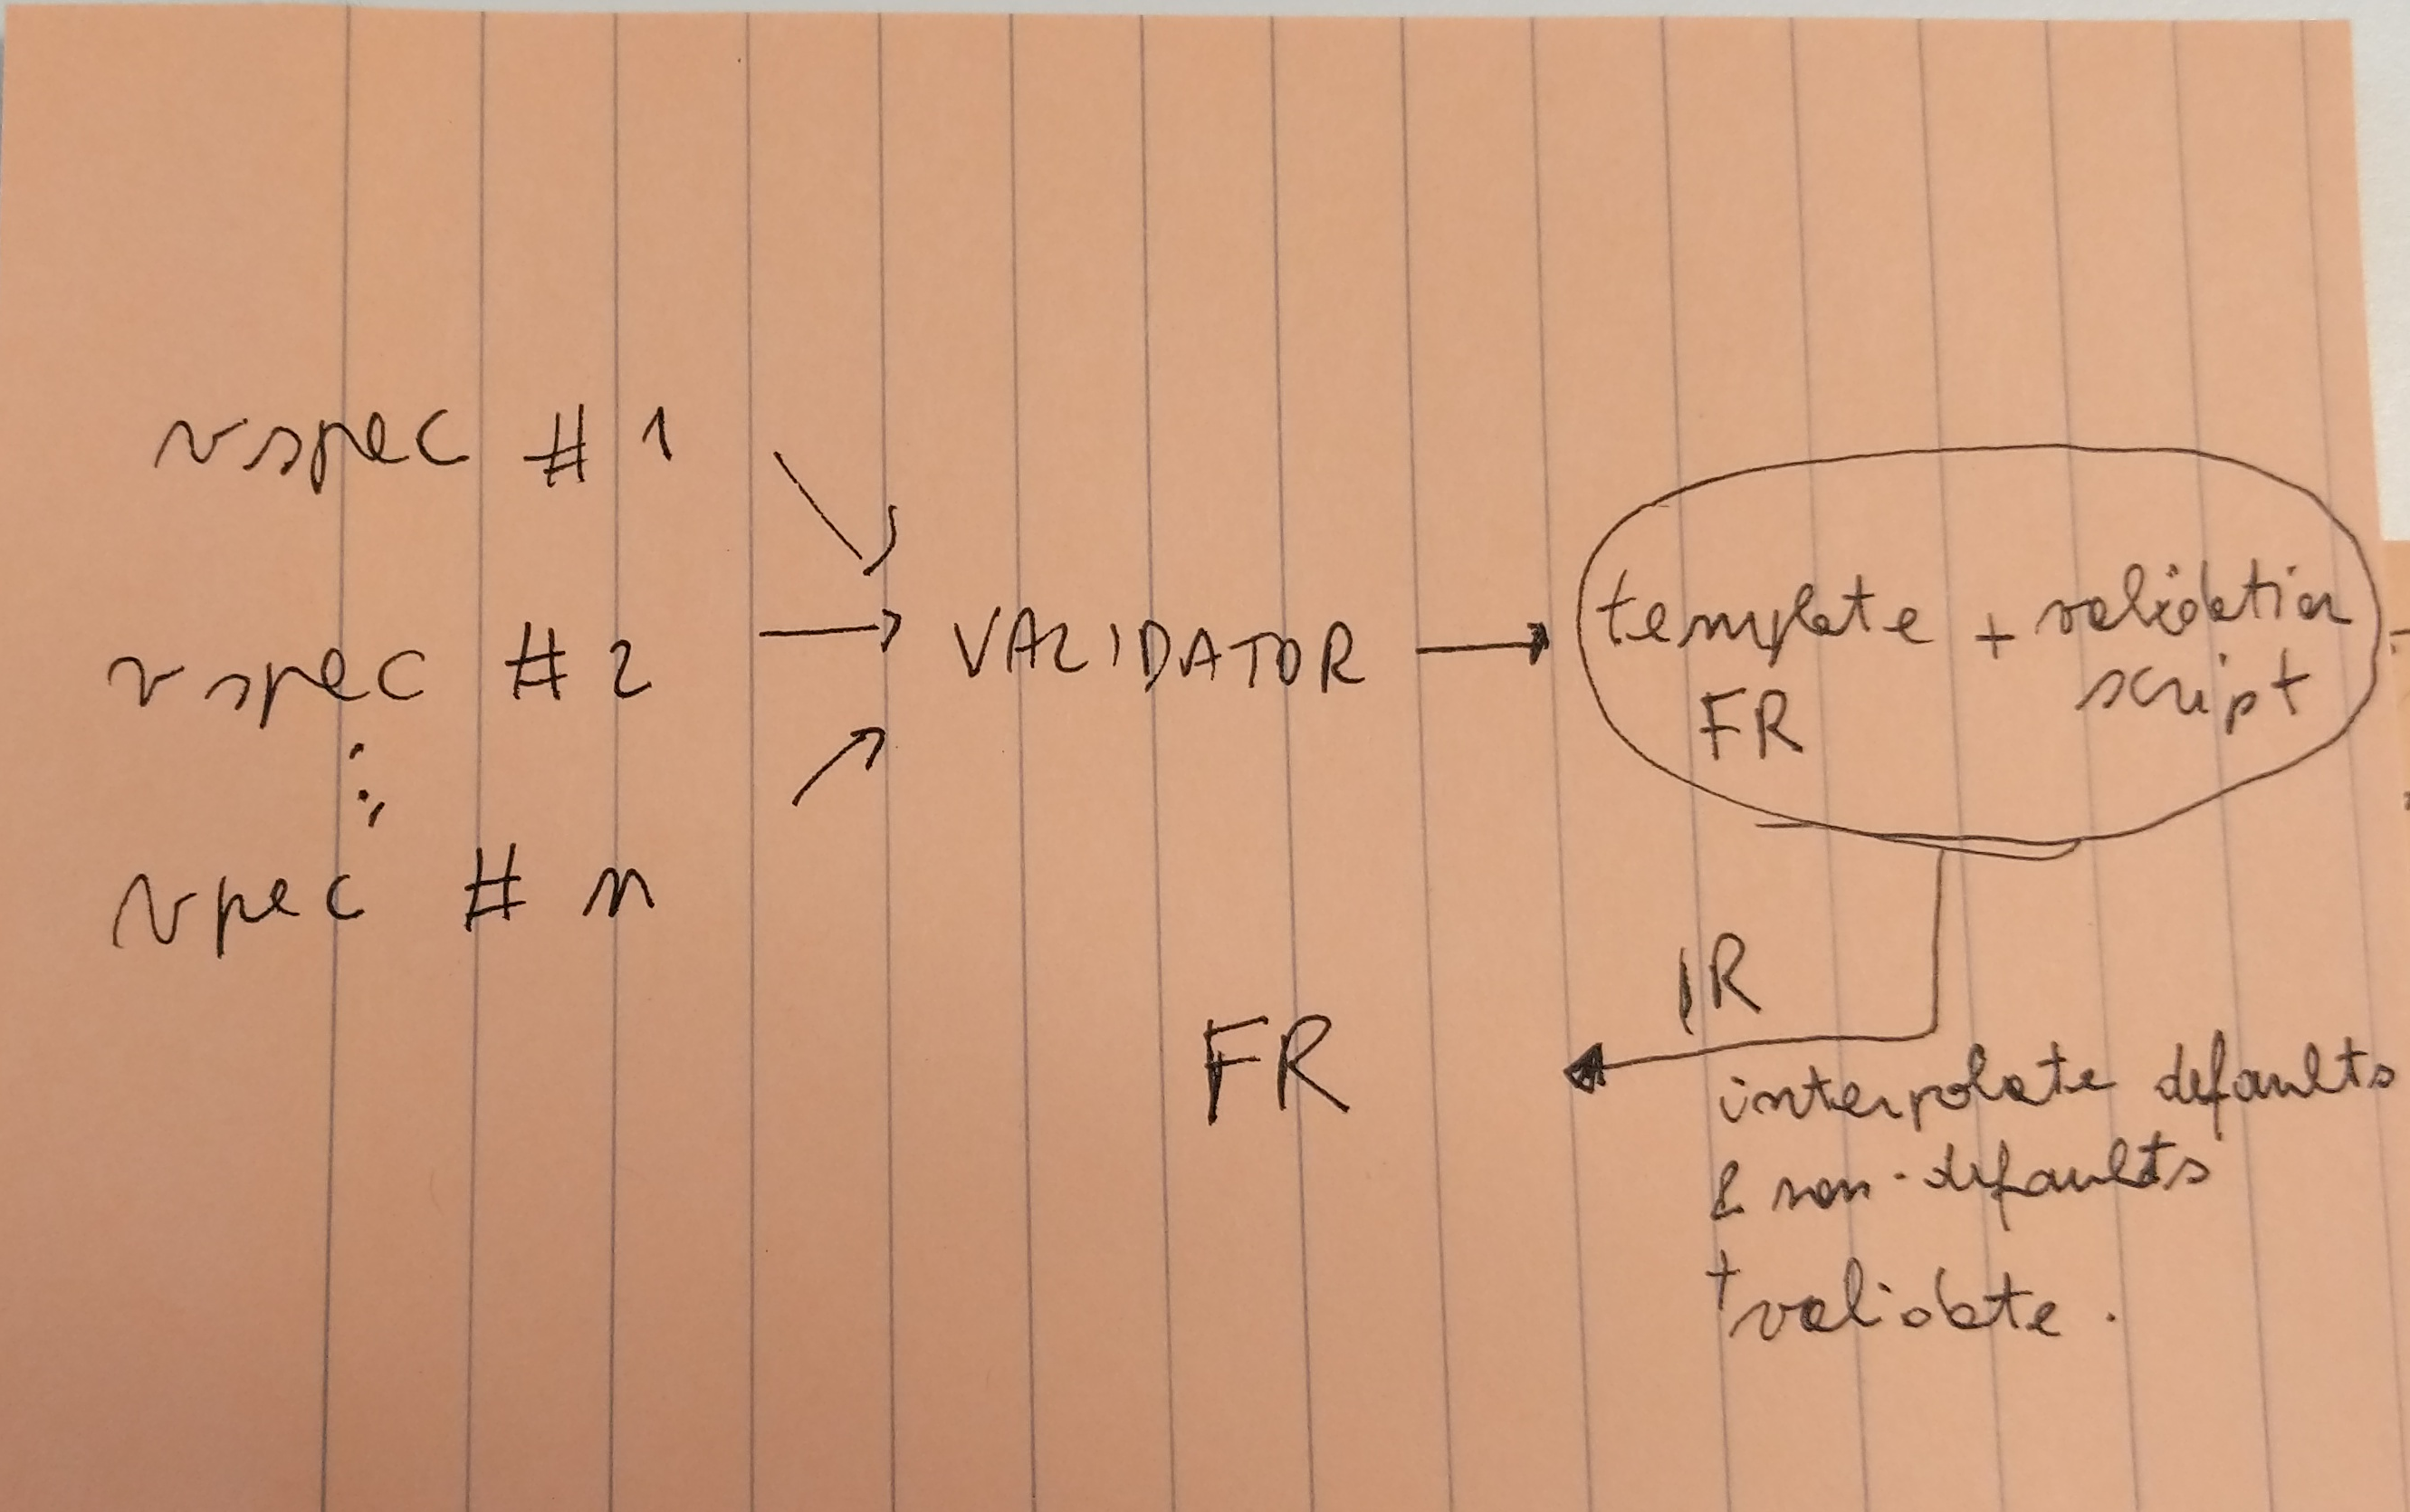 vspec # 1
vspec # 2
vpec # n
VALIDATOR
template + validation
FR script
IR
FR
interpolate defaults
& non-defaults
+ validate.